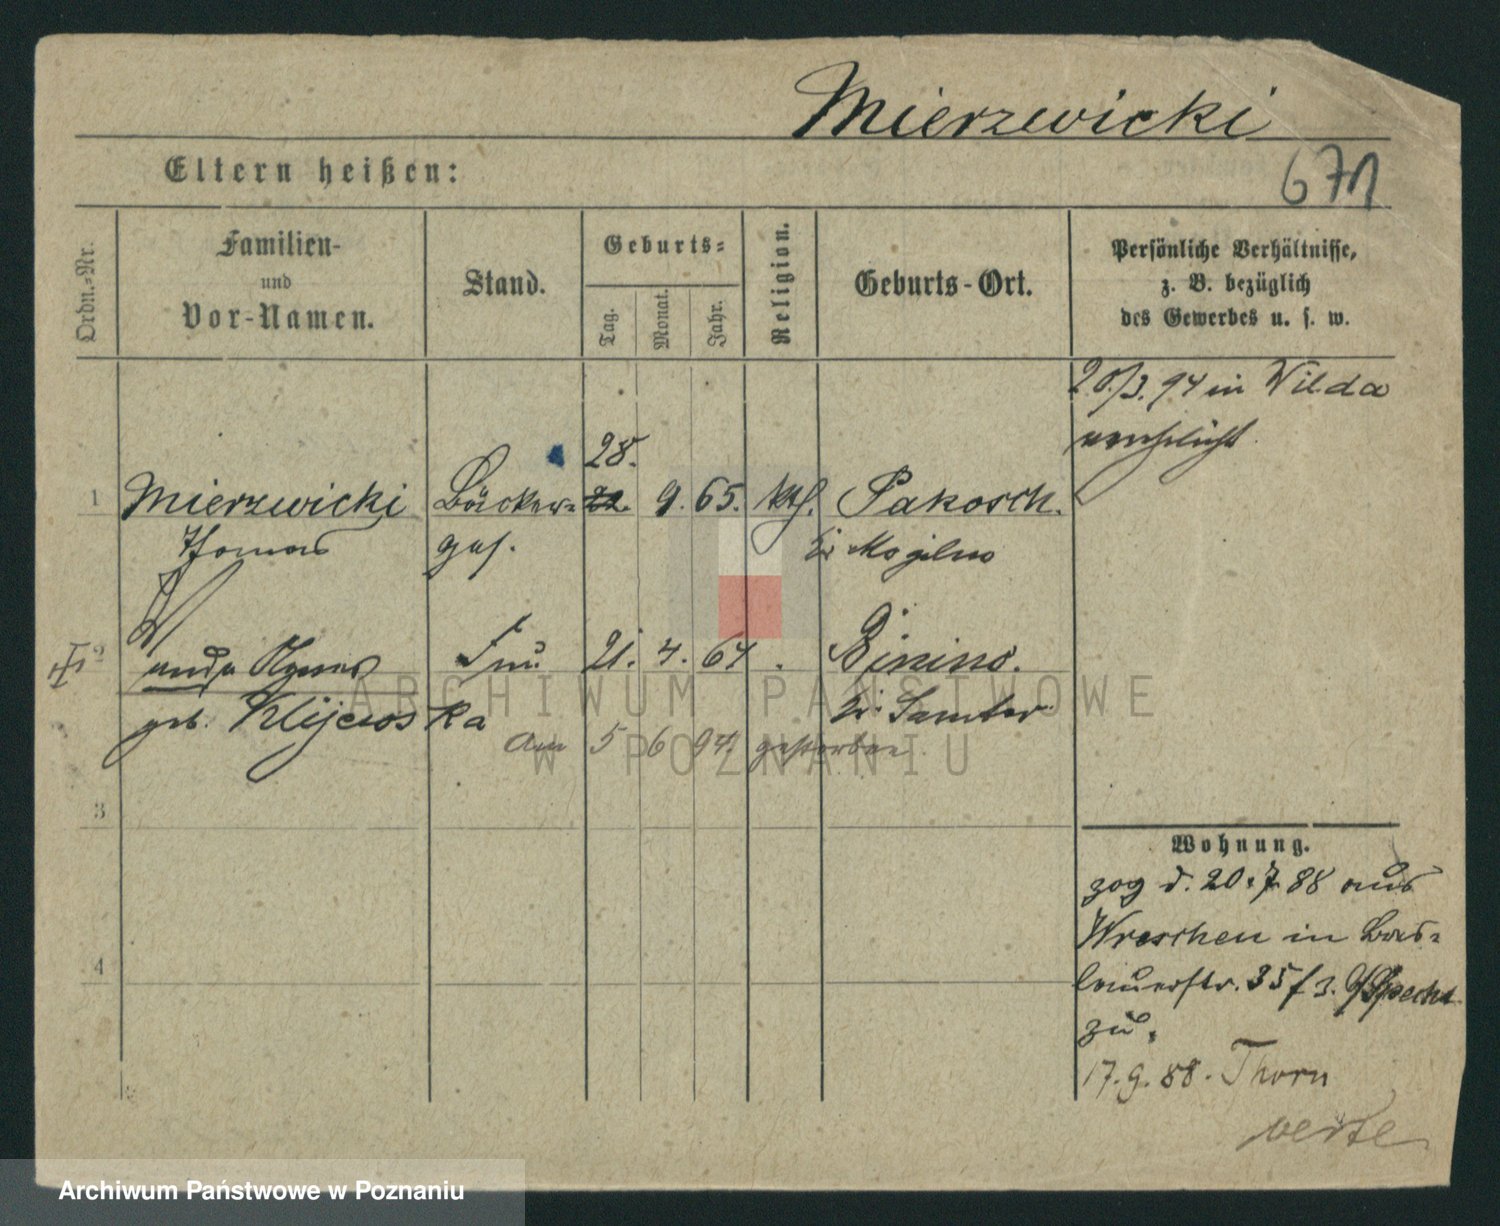 Mierzewicki
671
Eltern heißen:
Ordn.-Nr.
Familien-
und
Vor-Namen.
Stand.
Geburts-
Tag.
Monat.
Jahr.
Religion.
Geburts-Ort.
Persönliche Verhältnisse,
z. B. bezüglich
des Gewerbes u. s. w.
20/3. 94 in Wilda
verehelicht.
28.
1 Mierzewicki Bäcker- 22. 9. 65. kth. Pakosch.
Thomas ges. Kr Mogilno
2 Agnes Frau 21. 4. 64 Binino.
geb. Klijewska Kr. Samter
am 5 6 94. gestorben.
3
4
Wohnung.
zog d. 20.7.88 aus
Wreschen in Bres-
lauerstr. 35 b. Specht
zu.
17.9.88. Thorn
verte
ARCHIWUM PAŃSTWOWE
W POZNANIU
Archiwum Państwowe w Poznaniu